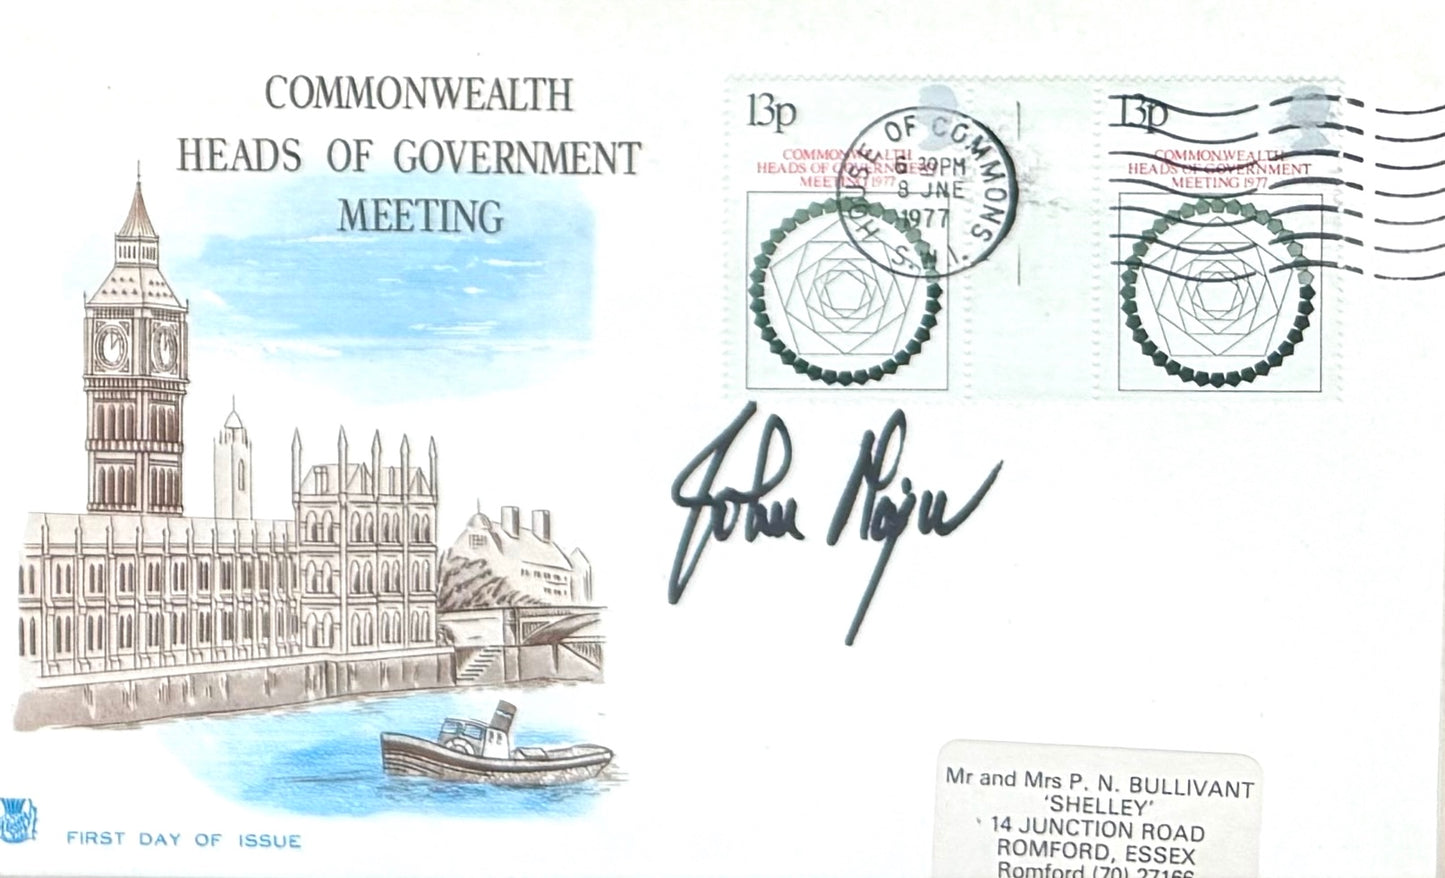 COMMONWEALTH
HEADS OF GOVERNMENT
MEETING
13p
COMMONWEALTH
HEADS OF GOVERNMENT
MEETING 1977
HOUSE OF COMMONS
6 30PM
8 JNE
1977
S.W.1.
13p
COMMONWEALTH
HEADS OF GOVERNMENT
MEETING 1977
John Major
FIRST DAY OF ISSUE
Mr and Mrs P. N. BULLIVANT
'SHELLEY'
14 JUNCTION ROAD
ROMFORD, ESSEX
Romford (70) 27166